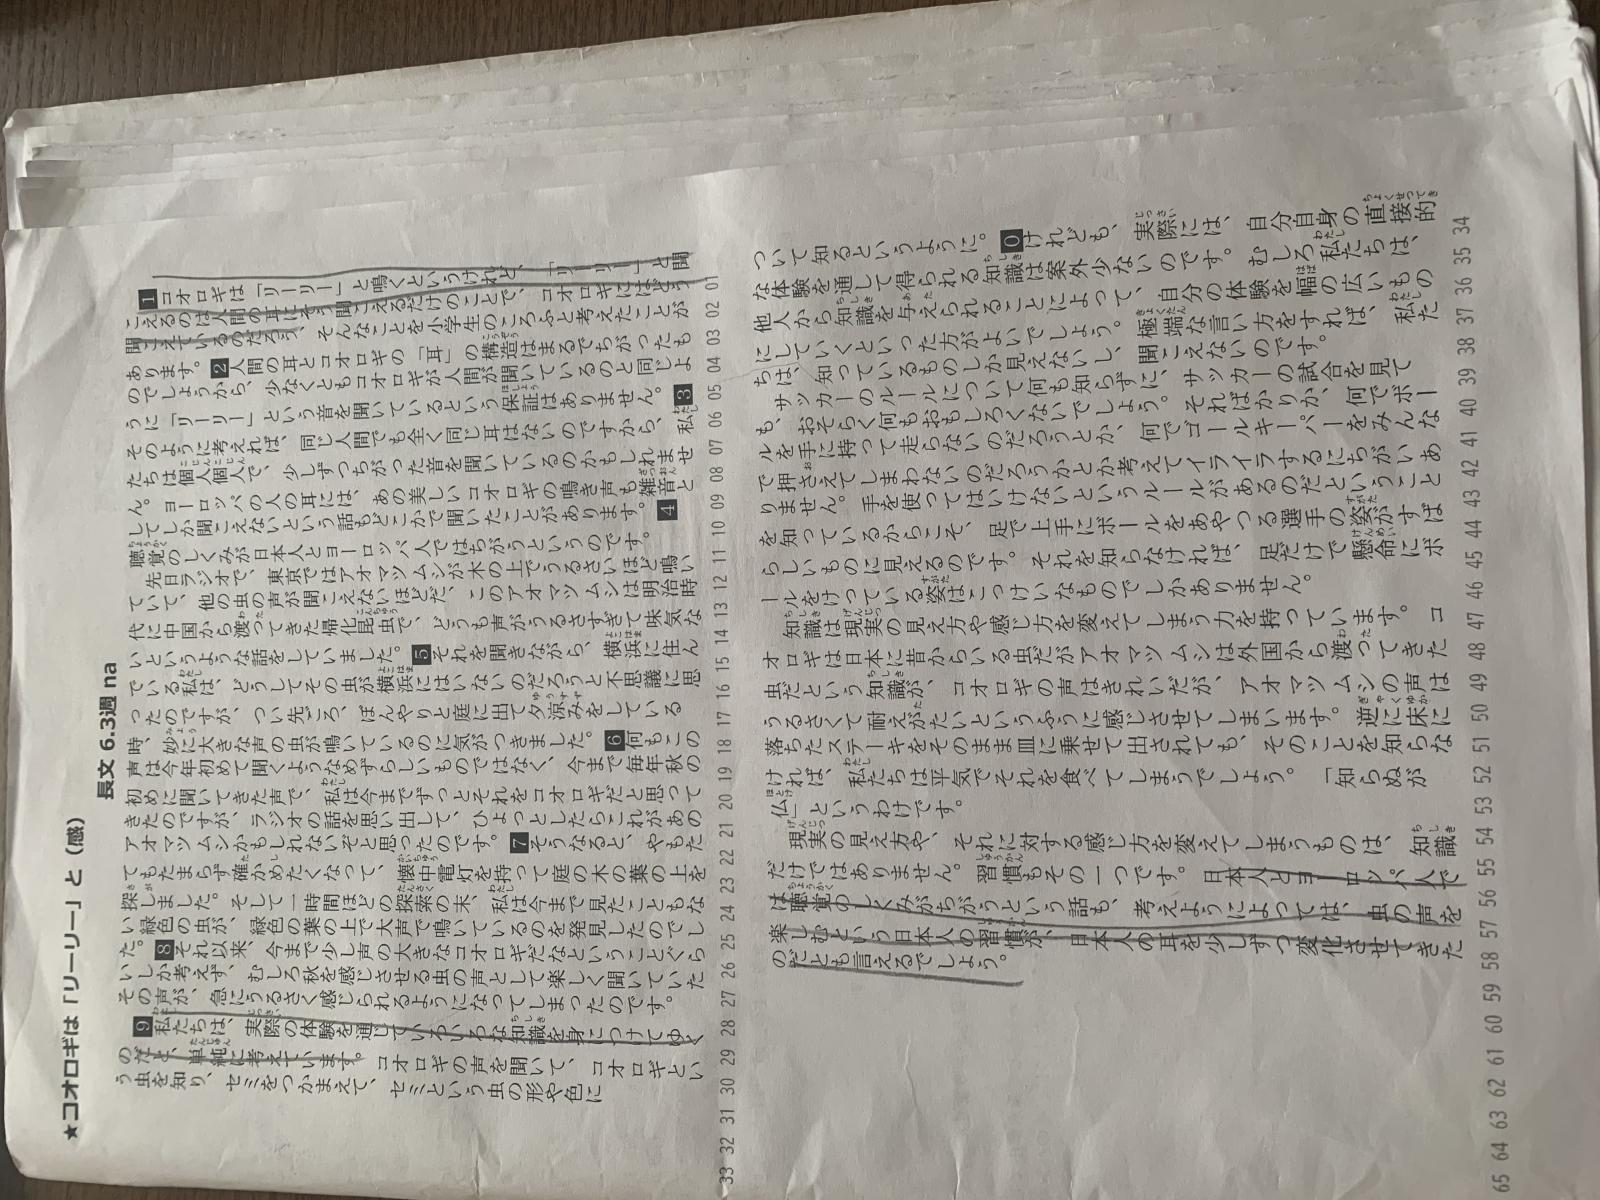 ★コオロギは「リーリー」と（感）
長文 6.3週 na
1コオロギは「リーリー」と鳴くというけれど、「リーリー」と聞
こえるのは人間の耳にそう聞こえるだけのことで、コオロギにはどう
聞こえているのだろう、そんなことを小学生のころふと考えたことが
あります。2人間の耳とコオロギの「耳」の構造はまるでちがったも
のでしょうから、少なくともコオロギが人間が聞いているのと同じよ
うに「リーリー」という音を聞いているという保証はありません。3
そのように考えれば、同じ人間でも全く同じ耳はないのですから、私
たちは個人個人で、少しずつちがった音を聞いているのかもしれませ
ん。ヨーロッパの人の耳には、あの美しいコオロギの鳴き声も雑音と
してしか聞こえないという話もどこかで聞いたことがあります。4
聴覚のしくみが日本人とヨーロッパ人ではちがうというのです。
先日ラジオで、東京ではアオマツムシが木の上でうるさいほど鳴い
ていて、他の虫の声が聞こえないほどだ、このアオマツムシは明治時
代に中国から渡ってきた帰化昆虫で、どうも声がうるさすぎて味気な
いというような話をしていました。5それを聞きながら、横浜に住ん
でいる私は、どうしてその虫が横浜にはいないのだろうと不思議に思
ったのですが、つい先ごろ、ぼんやりと庭に出て夕涼みをしている
時、妙に大きな声の虫が鳴いているのに気がつきました。6何もこの
声は今年初めて聞くようなめずらしいものではなく、今まで毎年秋の
初めに聞いてきた声で、私は今までずっとそれをコオロギだと思って
きたのですが、ラジオの話を思い出して、ひょっとしたらこれがあの
アオマツムシかもしれないぞと思ったのです。7そうなると、やもた
てもたまらず確かめたくなって、懐中電灯を持って庭の木の葉の上を
探しました。そして一時間ほどの探索の末、私は今まで見たこともな
い緑色の虫が、緑色の葉の上で大声で鳴いているのを発見したのでし
た。8それ以来、今まで少し声の大きなコオロギだなということぐら
いしか考えず、むしろ秋を感じさせる虫の声として楽しく聞いていた
その声が、急にうるさく感じられるようになってしまったのです。
9私たちは、実際の体験を通じていろいろな知識を身につけてゆく
のだと、単純に考えています。コオロギの声を聞いて、コオロギとい
う虫を知り、セミをつかまえて、セミという虫の形や色に
01 02 03 04 05 06 07 08 09 10 11 12 13 14 15 16 17 18 19 20 21 22 23 24 25 26 27 28 29 30 31 32 33
ついて知るというように。0けれども、実際には、自分自身の直接的
な体験を通して得られる知識は案外少ないのです。むしろ私たちは、
他人から知識を与えられることによって、自分の体験を幅の広いもの
にしていくといった方がよいでしょう。極端な言い方をすれば、私た
ちは、知っているものしか見えないし、聞こえないのです。
サッカーのルールについて何も知らずに、サッカーの試合を見て
も、おそらく何もおもしろくないでしょう。そればかりか、何でボー
ルを手に持って走らないのだろうとか、何でゴールキーパーをみんな
で押さえてしまわないのだろうかとか考えてイライラするにちがいあ
りません。手を使ってはいけないというルールがあるのだということ
を知っているからこそ、足で上手にボールをあやつる選手の姿がすば
らしいものに見えるのです。それを知らなければ、足だけで懸命にボ
ールをけっている姿はこっけいなものでしかありません。
知識は現実の見え方や感じ方を変えてしまう力を持っています。コ
オロギは日本に昔からいる虫だがアオマツムシは外国から渡ってきた
虫だという知識が、コオロギの声はきれいだが、アオマツムシの声は
うるさくて耐えがたいというふうに感じさせてしまいます。逆に床に
落ちたステーキをそのまま皿に乗せて出されても、そのことを知らな
ければ、私たちは平気でそれを食べてしまうでしょう。「知らぬが
仏」というわけです。
現実の見え方や、それに対する感じ方を変えてしまうものは、知識
だけではありません。習慣もその一つです。日本人とヨーロッパ人で
は聴覚のしくみがちがうという話も、考えようによっては、虫の声を
楽しむという日本人の習慣が、日本人の耳を少しずつ変化させてきた
のだとも言えるでしょう。
34 35 36 37 38 39 40 41 42 43 44 45 46 47 48 49 50 51 52 53 54 55 56 57 58 59 60 61 62 63 64 65